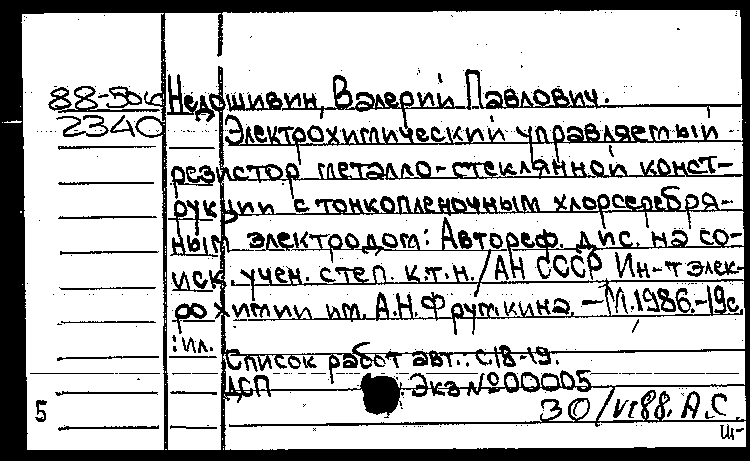 88-506
2340
Недошивин, Валерий Павлович.
Электрохимический управляемый
резистор металло-стеклянной конст-
рукции с тонкопленочным хлорсеребря-
ным электродом: Автореф. дис. на со-
иск. учен. степ. к.т.н. / АН СССР Ин-т элек-
рохимии им. А.Н. Фрумкина. - М. 1986. - 19с.
: ил.
Список работ авт.: с.18-19.
ДСП Экз №00005
5
30/VI88. А.С.
Ш-